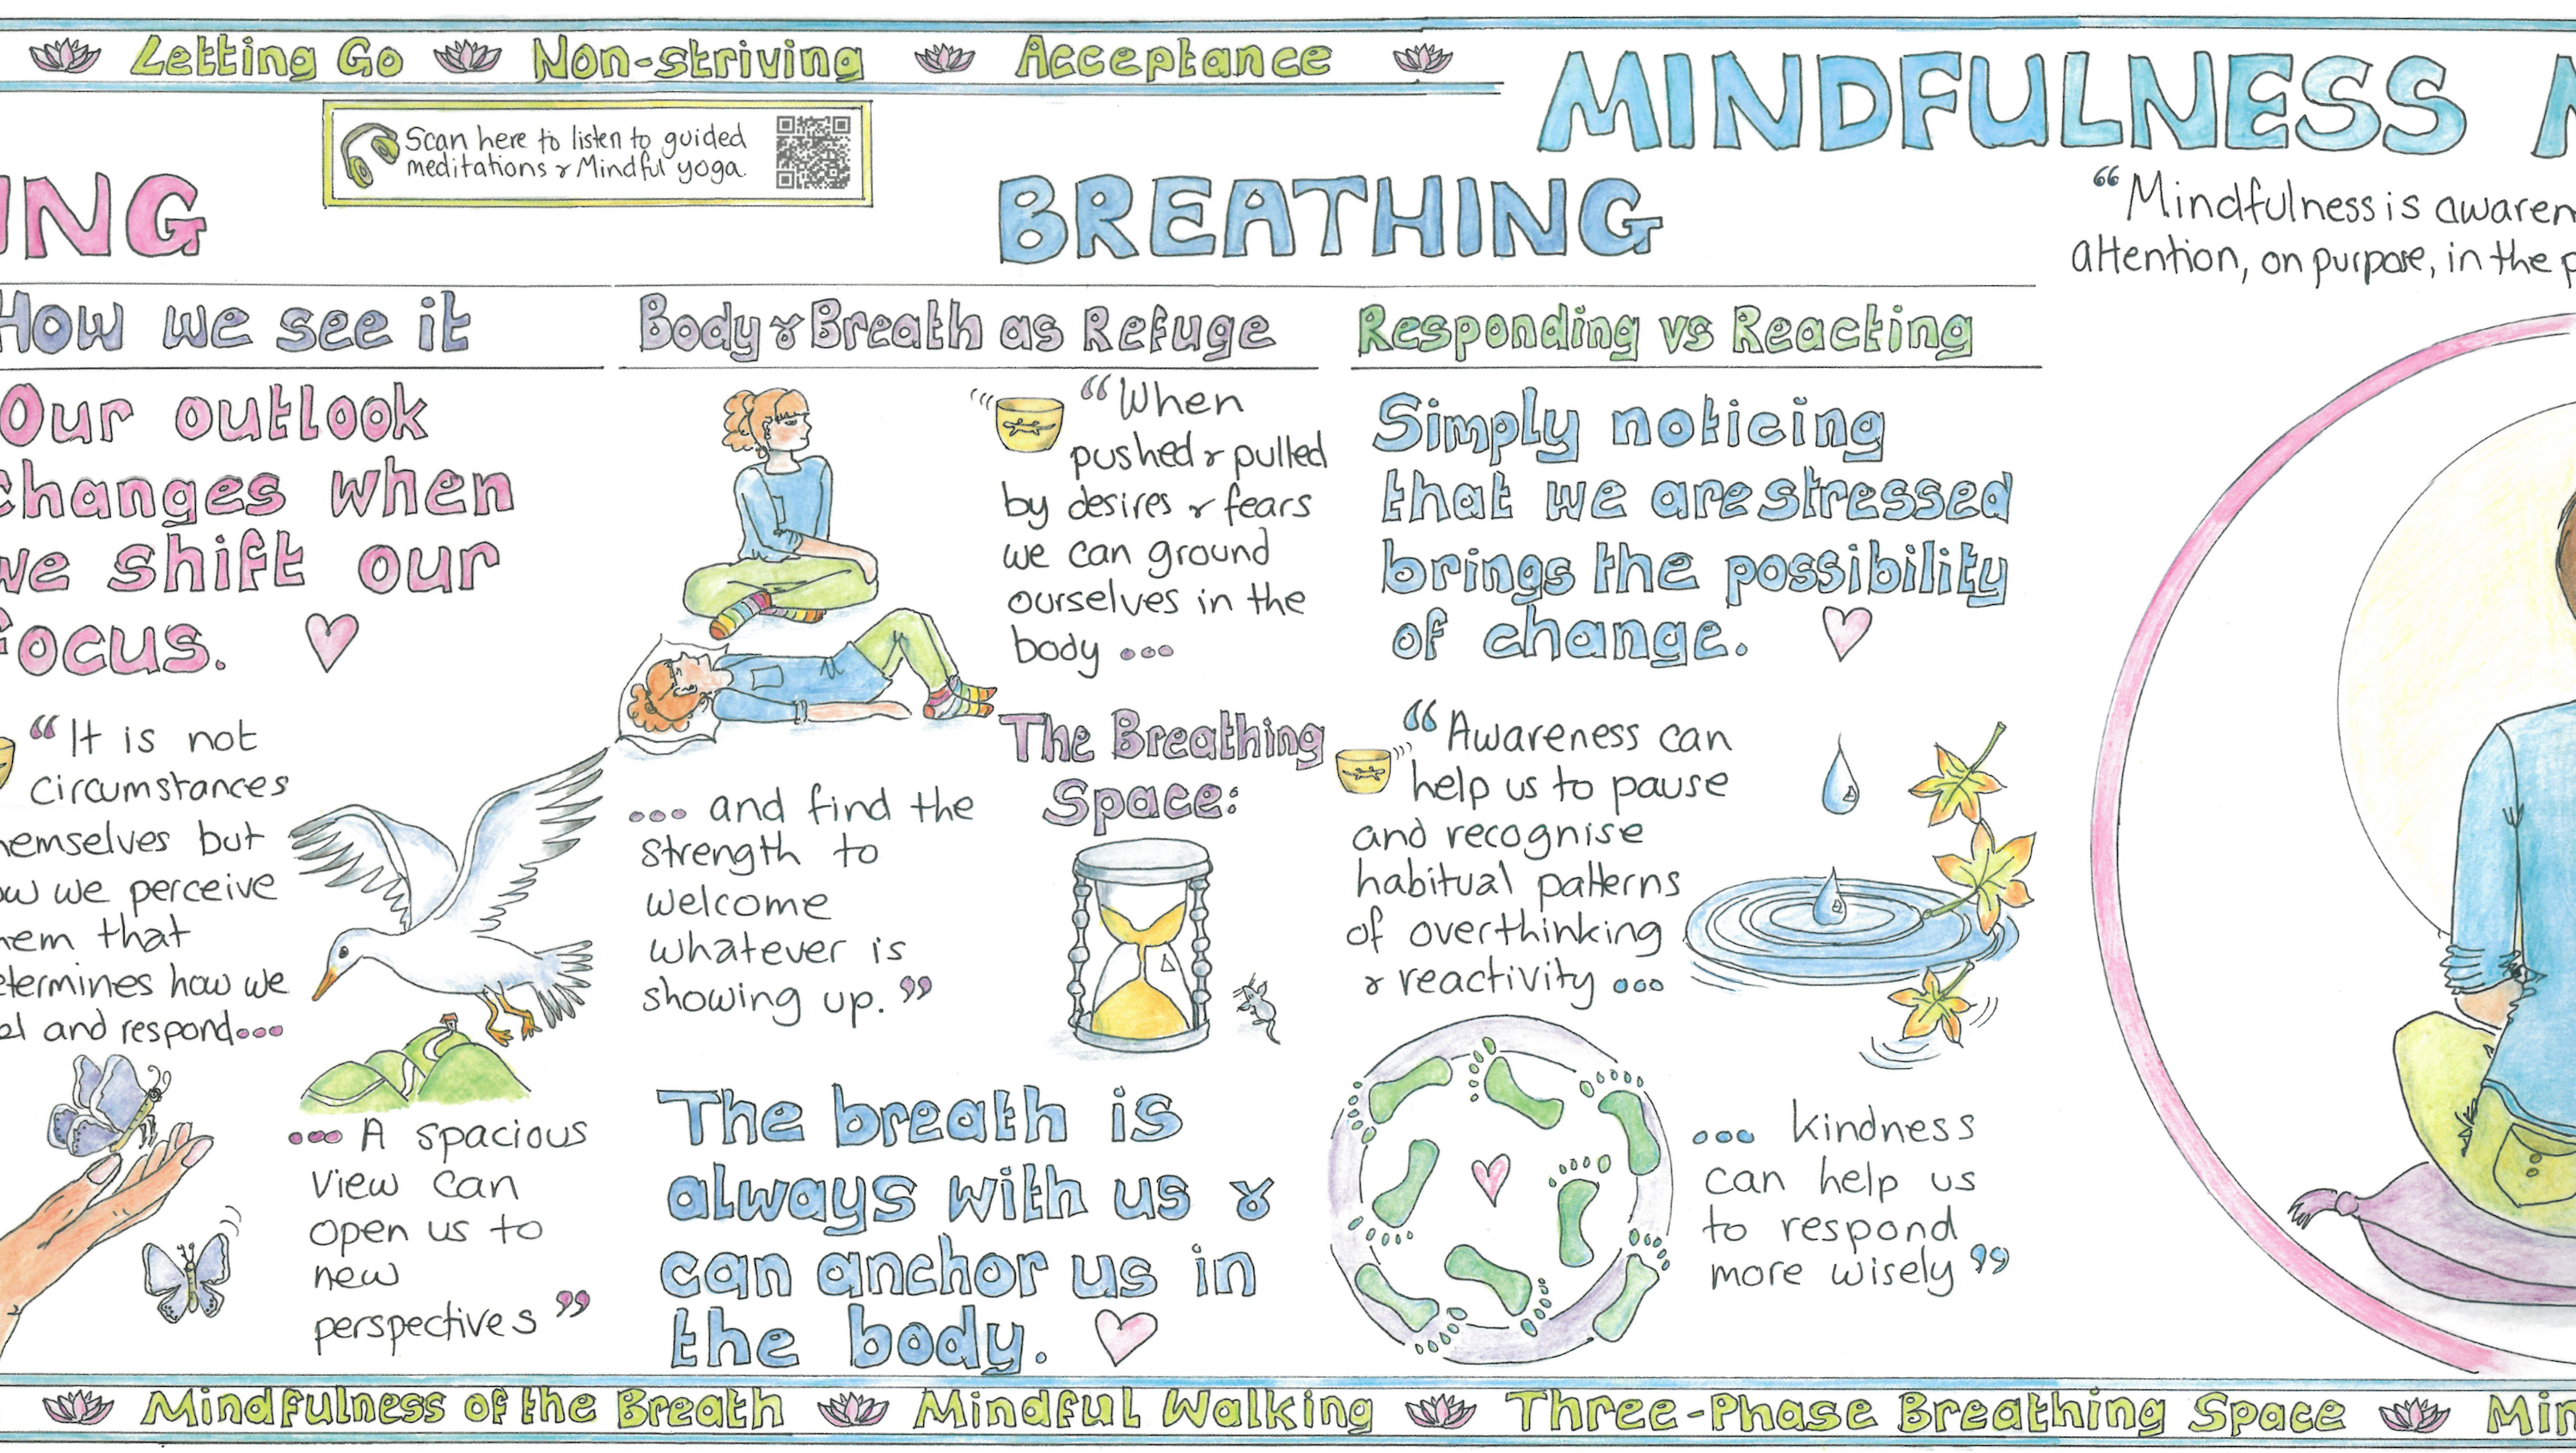 Letting Go Non-striving Acceptance
MINDFULNESS
Scan here to listen to guided
meditations & Mindful yoga.
BREATHING
"Mindfulness is
attention, on purpose, in the
How we see it
Our outlook
changes when
we shift our
focus.
"It is not
circumstances
themselves but
how we perceive
them that
determines how we
and respond...
... A spacious
view can
open us to
new
perspectives"
Body & Breath as Refuge
"When
pushed & pulled
by desires & fears
we can ground
ourselves in the
body ...
... and find the
strength to
welcome
whatever is
showing up."
The Breathing
Space:
The breath is
always with us &
can anchor us in
the body.
Responding vs Reacting
Simply noticing
that we are stressed
brings the possibility
of change.
"Awareness can
help us to pause
and recognise
habitual patterns
of overthinking
& reactivity ...
... kindness
can help us
to respond
more wisely"
Mindfulness of the Breath Mindful Walking Three-Phase Breathing Space